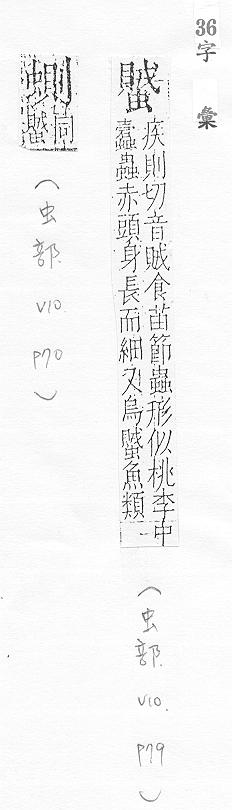 36字彙
疾則切音賊食苗節蟲形似桃李中
蠹蟲赤頭身長而細又烏魚類一
（虫部 V10. P79）
同
（虫部 V10 P70）